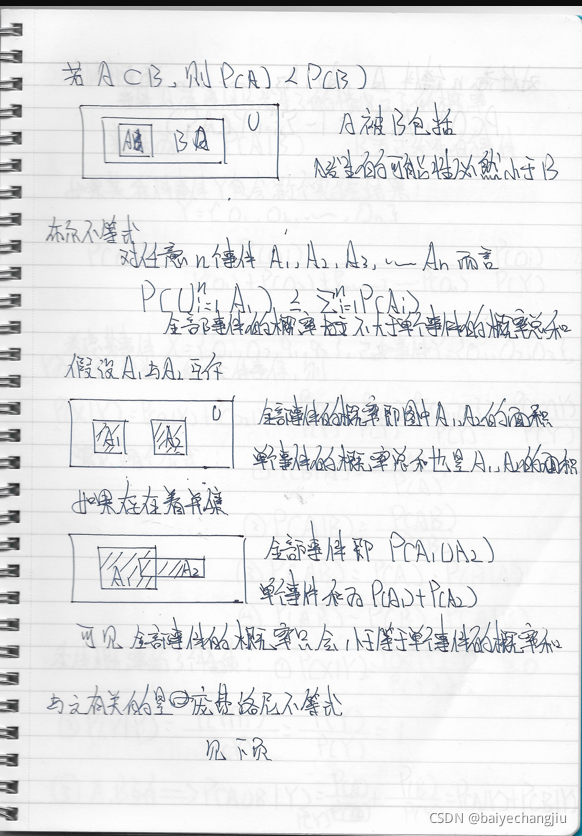 若 A⊂B，则 P(A)<P(B)
U
A B
A被B包括
A发生的可能性必然小于B
布尔不等式
对任意n个事件 A₁, A₂, A₃, … An 而言
P(⋃ⁿᵢ₌₁ Aᵢ) ≤ Σⁿᵢ₌₁ P(Aᵢ)
全部事件的概率 不大于单个事件的概率总和
假设A₁与A₂互斥
U
A₁ A₂
全部事件的概率即图中A₁,A₂的面积
单个事件的概率总和也是A₁,A₂的面积
如果存在着并集
A₁ A₂
全部事件即 P(A₁∪A₂)
单个事件和为 P(A₁)+P(A₂)
可见 全部事件的概率只会小于等于单个事件的概率和
与之有关的是 庞费洛尼不等式
见下页
CSDN @baiyechangjiu